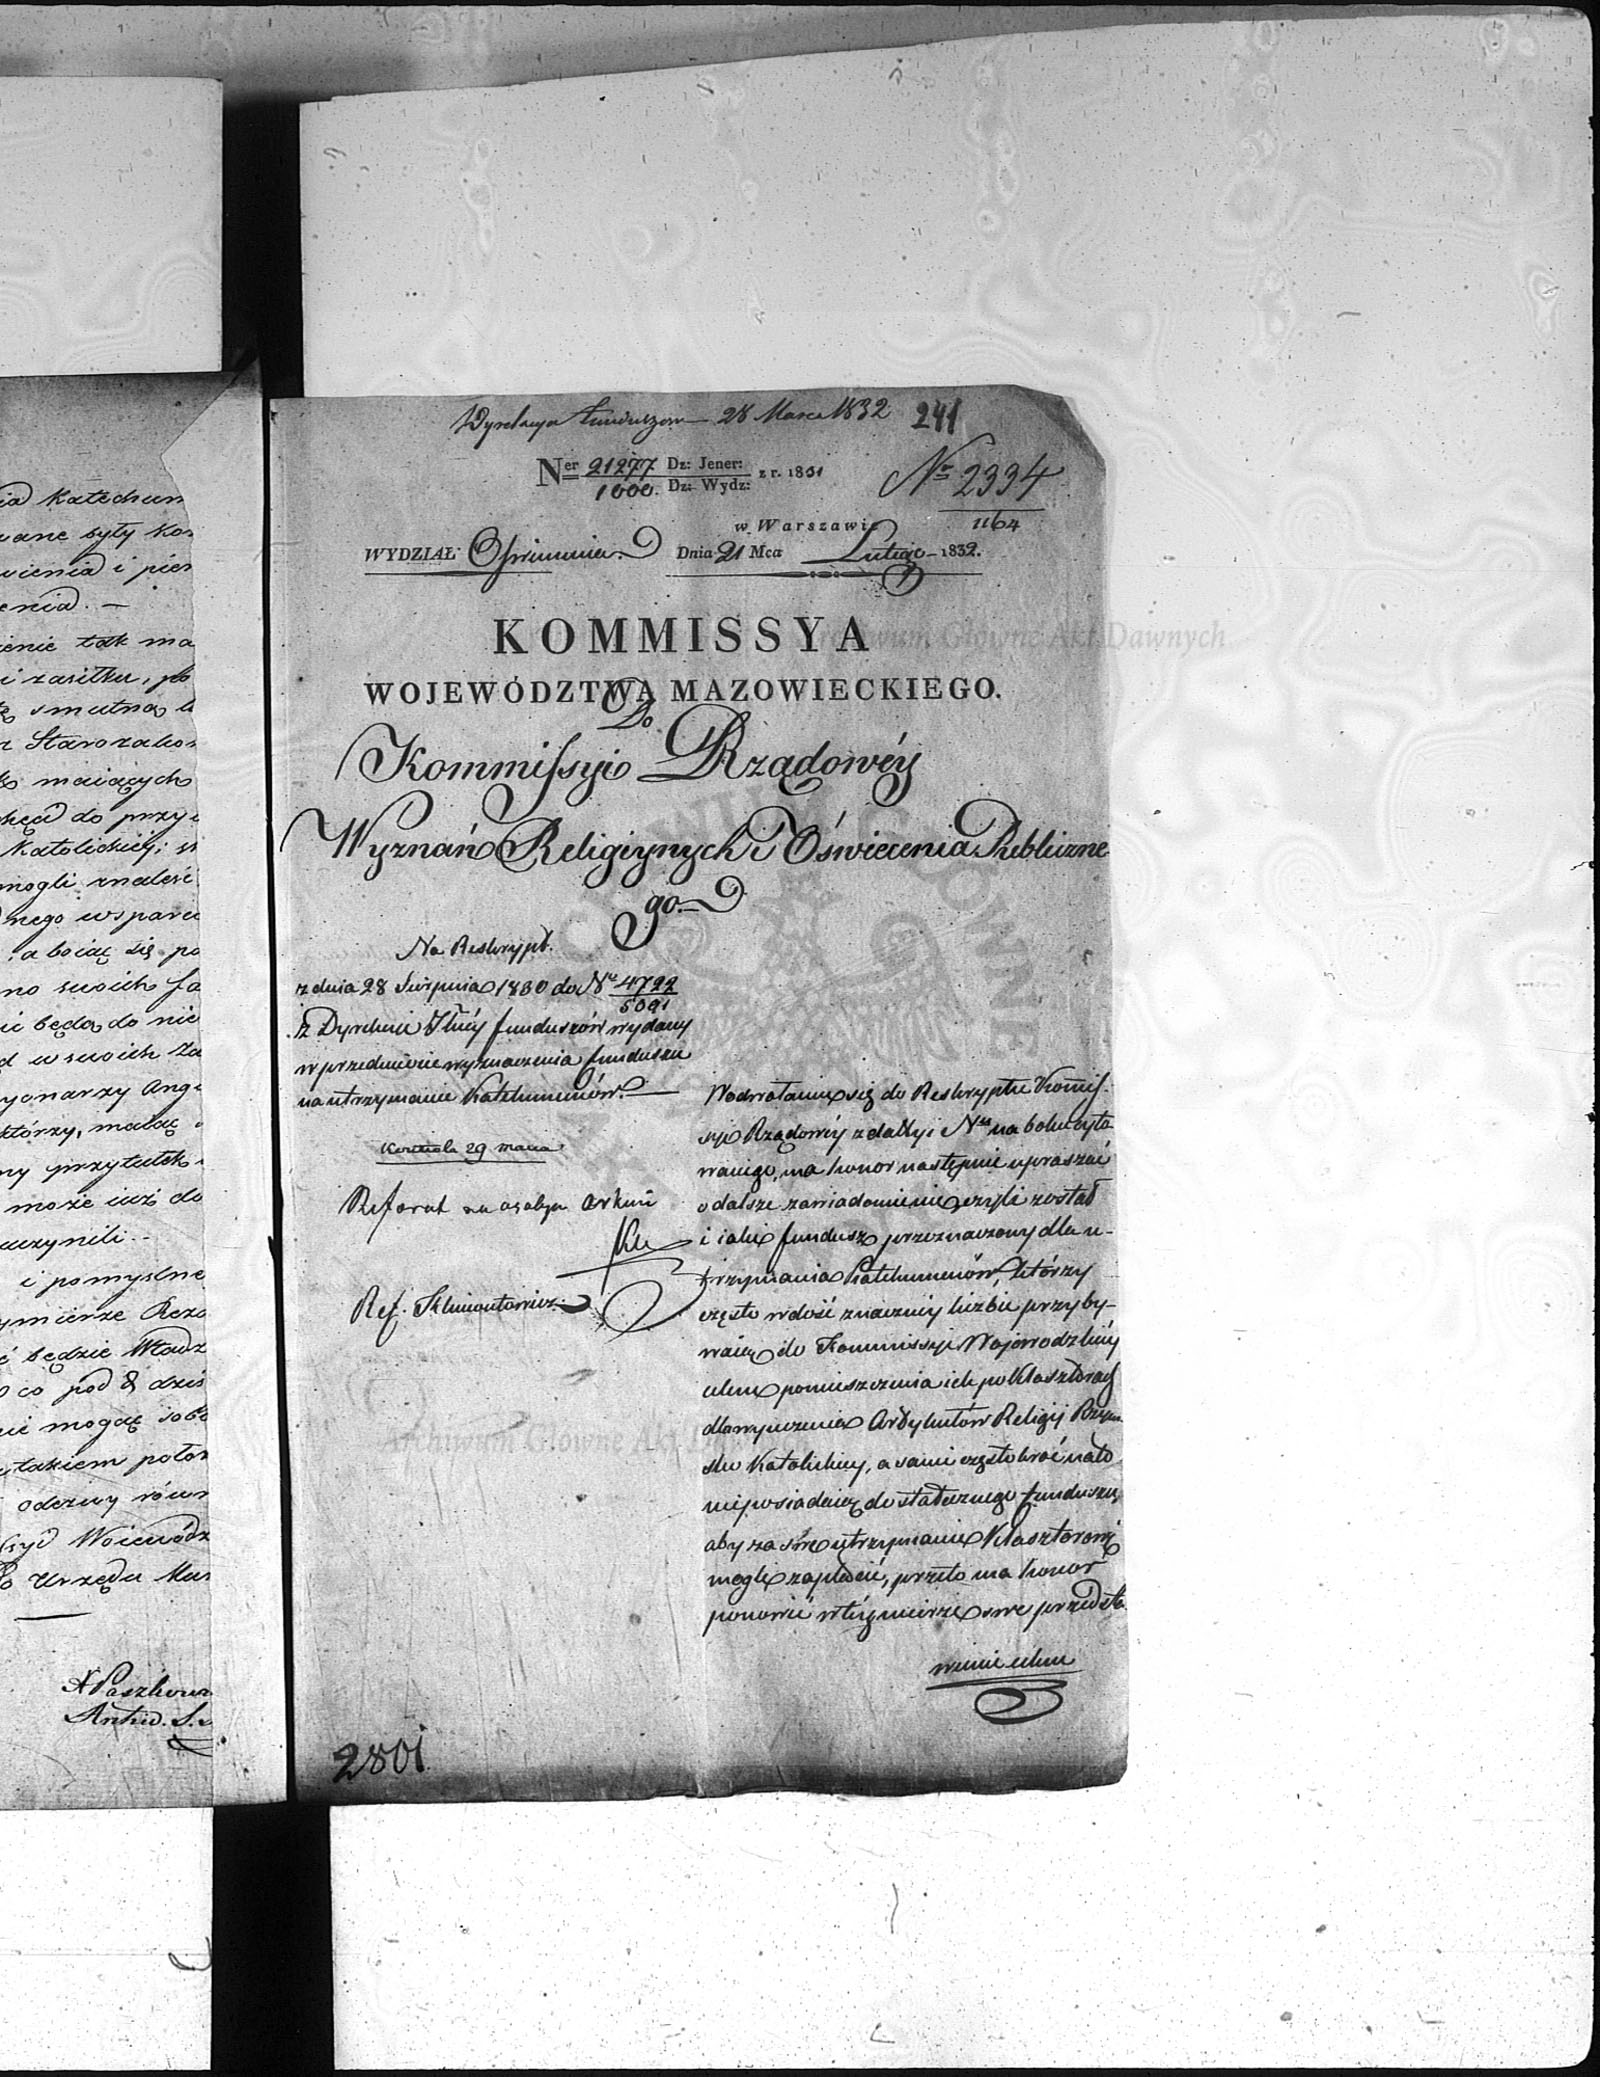 ia Katechum
wane były kos
wienia i pier
enia. —
ienie tak ma
i zasiłku, po
smutną
Starozakon
maiących
chęci do przy
Katolickiéy;
mogli znaleść
nego wsparci
a boiąc się po
no swoich fa
ić będą do nie
d w swoich Za
yonarzy Ang
którzy, maiąc
ny przytułek
może iuż do
uczynili. -
i pomyslne
ymierze Rezo
ć będzie Władz
o co pod d. dziś
nie mogąc sobie
takiem poło
odezwy rów
syi Woiewódz
do Urzędu Mun
A Paszkow
Dyrekcya Funduszow — 28 Marca 1832
241
Ner 21277 Dz: Jener: z r. 1831
1000. Dz: Wydz:
No 2334
1164
w Warszawie
WYDZIAŁ Oświecenia. Dnia 21 Mca Lutego 1832.
KOMMISSYA
WOJEWÓDZTWA MAZOWIECKIEGO.
Do
Kommissyi Rządowéy
Wyznań Religiynych i Oświecenia Publiczne
go.
Na Reskrypt.
z dnia 28 Sierpnia 1830 do Nru 4722
5091
z Dyrekcyi Funduszów wydany
w przedmiocie wyznaczenia funduszu
na utrzymanie Katechumenów. —
Kontrola 29 marca
Referat na osobym Arkuszu
Ref. Klimontowicz
W odwołaniu się do Reskryptu Kommis-
syi Rządowéy z daty i Nru na boku cyto
wanego, ma honor następnie upraszać
o dalsze zawiadomienie, czyli został
i iaki fundusz przeznaczony dla u-
trzymania Katechumenów, którzy
często w dość znaczney liczbie przyby-
waią do Kommissyi Wojewodzkiéy
celem pomieszczenia ich po Klasztorach
dla wyuczenia Artykułów Religii Rzym
sko Katolickiey, a sami często kroć na to
nieposiadaią dostatecznego funduszu,
aby za swe utrzymanie Klasztorowi
mogli zapłacić, przeto ma honor
ponowić w téy mierze swe przedsta
wienie celem
2801
Archiwum Główne Akt Dawnych
Archiwum Główne Akt Dawnych